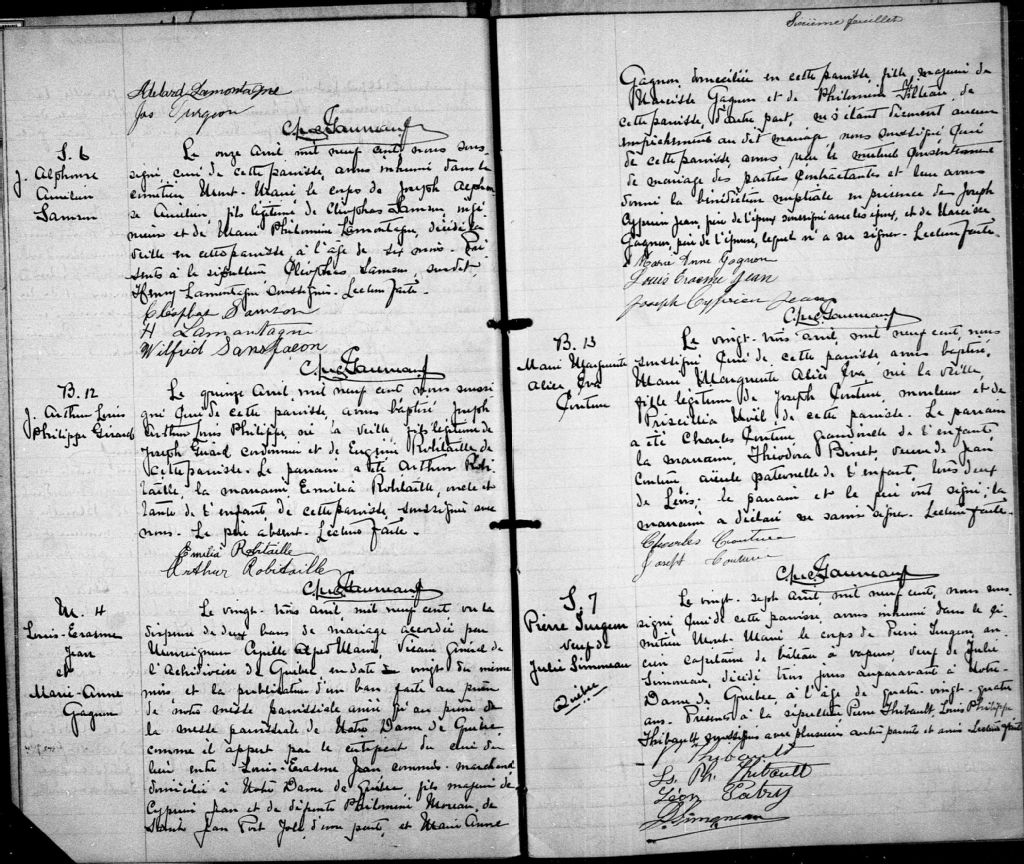 Adelard Lamontagne
Jos Turgeon
S. 6
J. Alphonse
Aurélien
Samson
Le onze Avril mil neuf cent nous sous
signé, curé de cette paroisse, avons inhumé dans le
cimetière Mont-Marie le corps de Joseph Alphon
se Aurélien, fils légitime de Cléophas Samson ingé
nieur et de Marie Philomène Lamontagne, décédé la
veille en cette paroisse à l'âge de six mois. Pré
sents à la sépulture Cléophas Samson, 
Henry Lamontagne soussignés. Lecture faite.
Cléophas Samson
H Lamontagne
Wilfrid Sansfaçon
B. 12
J. Arthur Louis
Philippe Girard
Le quinze Avril, mil neuf cent nous sousi
gné Curé de cette paroisse, avons baptisé Joseph
Arthur Louis Philippe, né la veille, fils légitime de
Joseph Girard cordonnier et de Eugénie Robitaille de
cette paroisse. Le parrain a été Arthur Robi
taille, la marraine Emilia Robitaille, oncle et
tante de l'enfant, de cette paroisse, soussignés avec
nous. Le père absent. Lecture faite.
Emilia Robitaille
Arthur Robitaille
M. 4
Louis-Erasme
Jean
et
Marie-Anne
Gagnon
Le vingt-trois avril, mil neuf cent vu la
dispense de deux bans de mariage accordée par
Monseigneur Cyrille Alfred Marois, Vicaire Général de
l'Archidiocèse de Québec en date du vingt du même
mois et la publication d'un ban faite au prône
de notre messe paroissiale ainsi qu'au prône de
la messe paroissiale de Notre Dame de Québec,
comme il appert par le certificat du curé du
lieu entre Louis-Erasme Jean commis-marchand
domicilié à Notre Dame de Québec, fils majeur de
Cyprien Jean et de défunte Philomène Moreau, de
Saint Jean Port Joli, d'une part, et Marie Anne
Sixième feuillet
Gagnon, domiciliée en cette paroisse, fille majeure de
Narcisse Gagnon et de Philomène Filteau, de
cette paroisse d'autre part, ne s'étant découvert aucun
empêchement au dit mariage nous soussigné Curé
de cette paroisse, avons reçu le mutuel consentement
de mariage des parties contractantes et leur avons
donné la bénédiction nuptiale en présence de Joseph
Cyprien Jean, père de l'époux soussigné avec les époux, et de Narcisse
Gagnon, père de l'épouse, lequel n'a su signer. Lecture faite.
Marie Anne Gagnon
Louis Erasme Jean
Joseph Cyprien Jean
B. 13
Marie Marguerite
Alice Eva
Couture
Le vingt-trois avril, mil neuf cent, nous
soussigné Curé de cette paroisse avons baptisé,
Marie Marguerite Alice Eva, née la veille,
fille légitime de Joseph Couture, mouleur et de
Priscillia Noël de cette paroisse. Le parrain
a été Charles Couture, grand oncle de l'enfant,
la marraine, Théodora Binet, veuve de Jean
Couture, aïeule paternelle de l'enfant, tous deux
de Lévis; le parrain et le père ont signé; la
marraine a déclaré ne savoir signer. Lecture faite.
Charles Couture
Joseph Couture
S. 7
Pierre Turgeon
veuf de
Julie Simoneau
Québec
Le vingt-sept Avril, mil neuf cent, nous sous
signé Curé de cette paroisse, avons inhumé dans le ci
metière Mont-Marie le corps de Pierre Turgeon, an
cien capitaine de bateau à vapeur, veuf de Julie
Simoneau, décédé trois jours auparavant à Notre
Dame de Québec, à l'âge de quatre-vingt-quatre
ans. Présents à la sépulture Pierre Thibault, Louis Philippe
Thibault, soussignés avec plusieurs autres parents et amis. Lecture faite
P Thybault
Ls. Ph. Thibault
Léon Patry
Simoneau